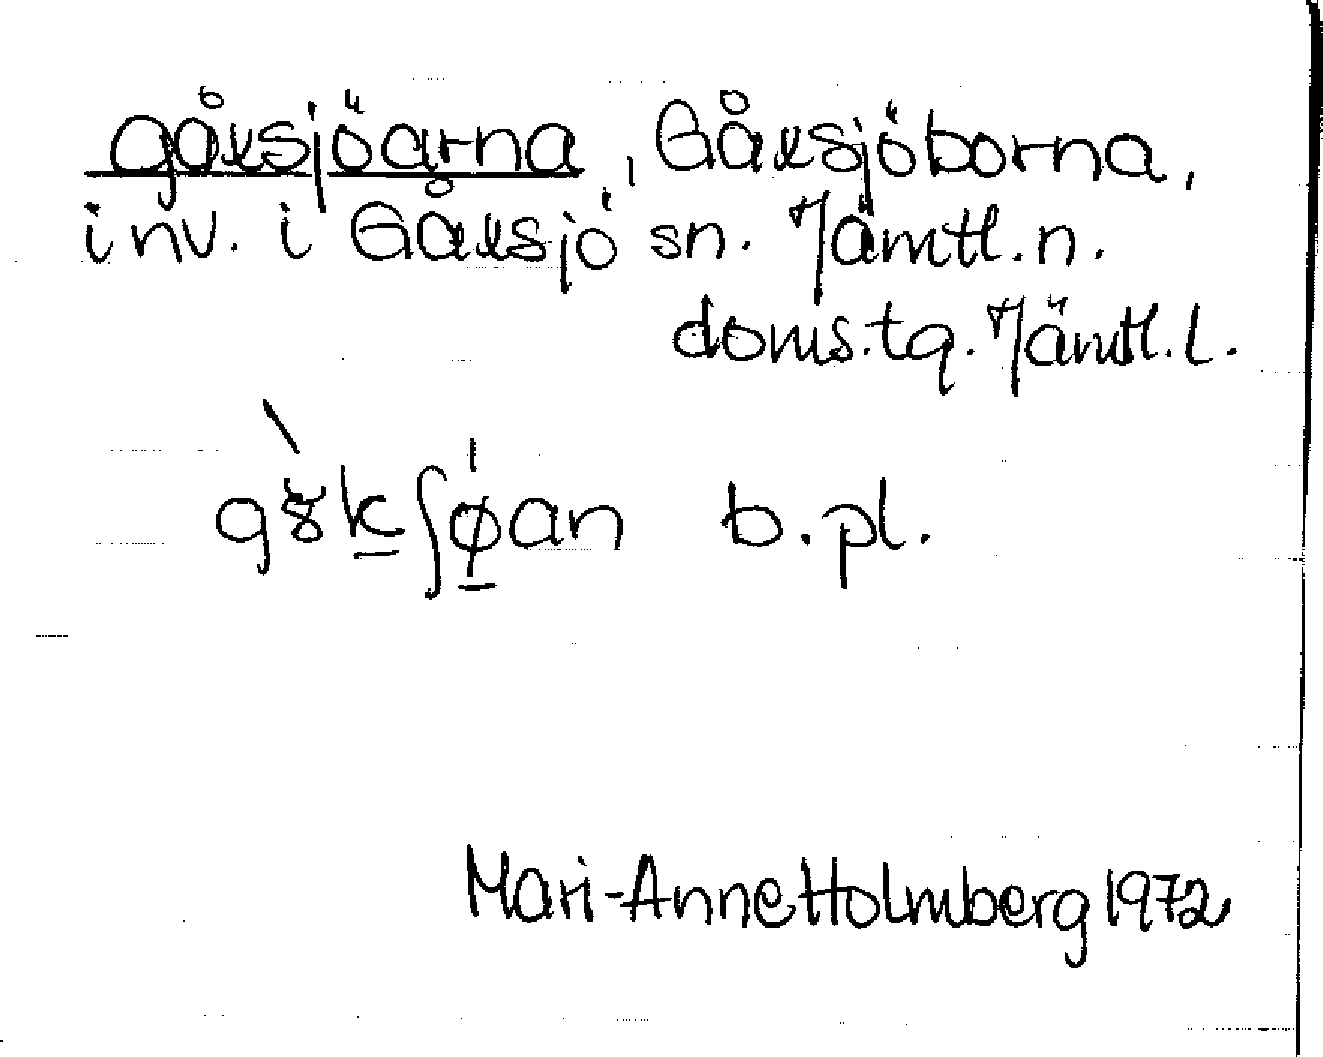 gåxsjöarna, Gåxsjöborna,
inv. i Gåxsjö sn. Jämtl.n.
doms.tg. Jämtl.l.
b.pl.
Mari-Anne Holmberg 1972